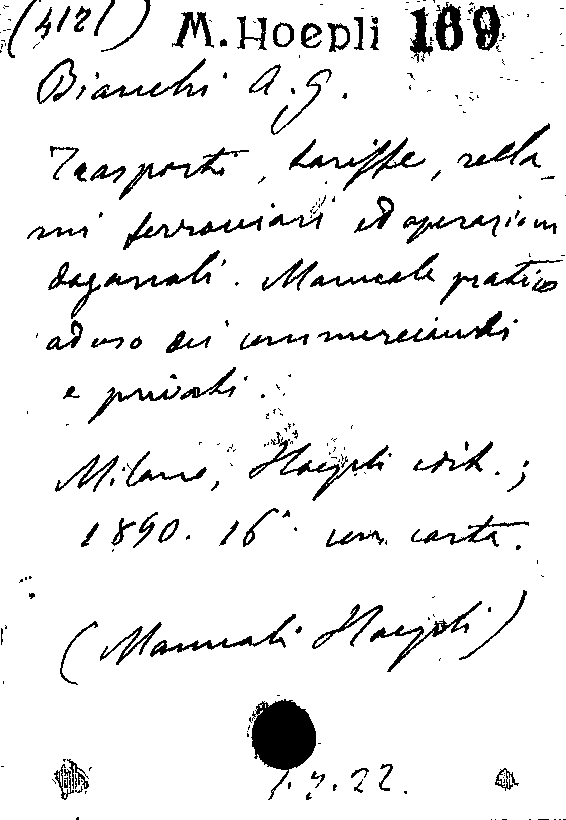 (4121) M. Hoepli 169
Bianchi A. G.
Trasporti, tariffe, recla-
mi ferroviari ed operazioni
doganali. Manuale pratico
ad uso dei commercianti
e privati.
Milano, Hoepli edit.;
1890. 16°. con carta.
(Manuali Hoepli)
22.